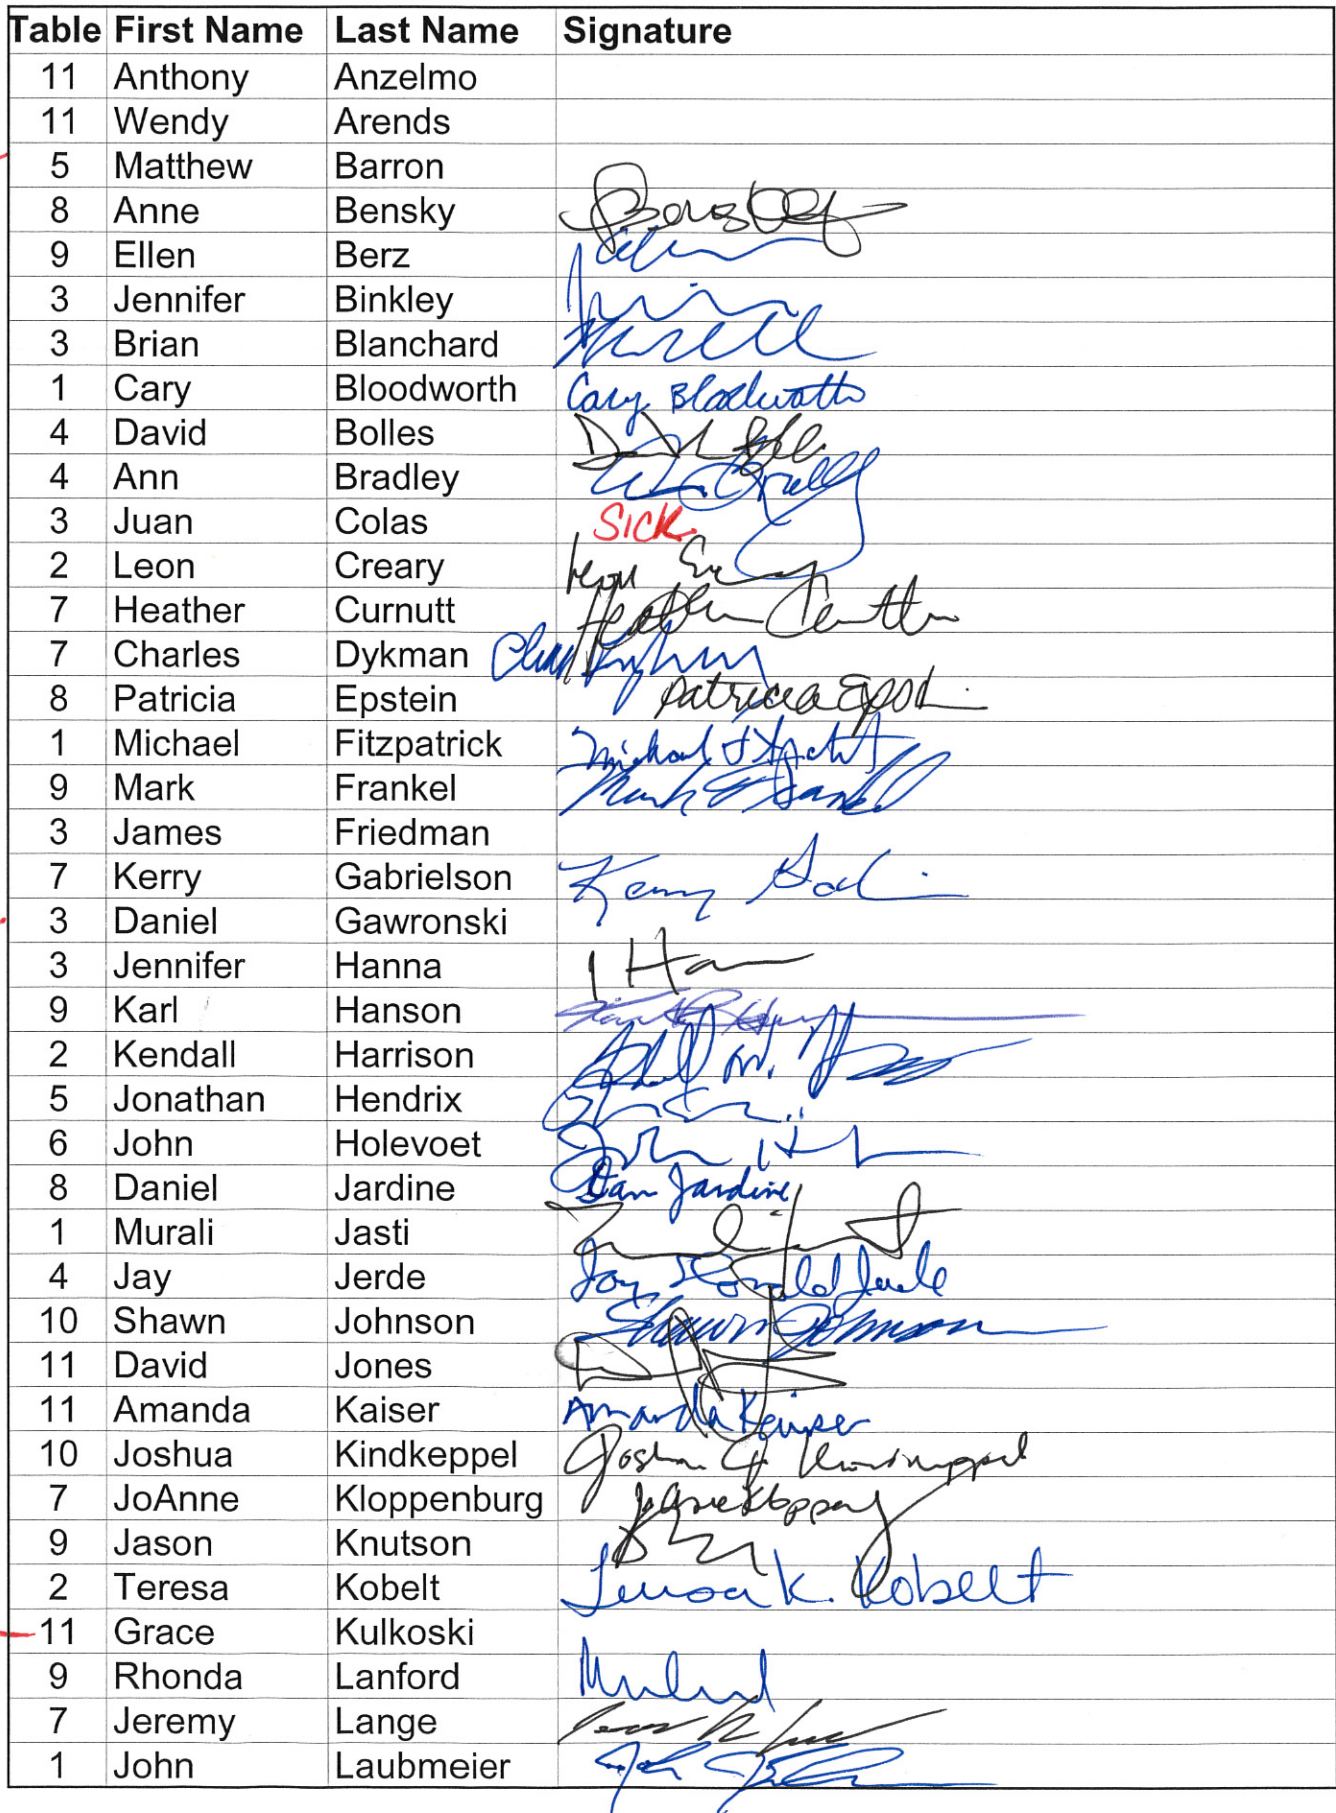 Table First Name Last Name Signature
11 Anthony Anzelmo
11 Wendy Arends
5 Matthew Barron
8 Anne Bensky Bensky
9 Ellen Berz
3 Jennifer Binkley
3 Brian Blanchard
1 Cary Bloodworth Cary Bloodworth
4 David Bolles
4 Ann Bradley
3 Juan Colas SICK
2 Leon Creary Leon
7 Heather Curnutt Heather
7 Charles Dykman
8 Patricia Epstein Patricia
1 Michael Fitzpatrick Michael
9 Mark Frankel Mark
3 James Friedman
7 Kerry Gabrielson Kerry
3 Daniel Gawronski
3 Jennifer Hanna
9 Karl Hanson
2 Kendall Harrison
5 Jonathan Hendrix
6 John Holevoet John
8 Daniel Jardine Dan Jardine
1 Murali Jasti
4 Jay Jerde Jay Ronald Jerde
10 Shawn Johnson Shawn Johnson
11 David Jones
11 Amanda Kaiser Amanda Kaiser
10 Joshua Kindkeppel Joshua
7 JoAnne Kloppenburg
9 Jason Knutson
2 Teresa Kobelt Teresa K. Kobelt
11 Grace Kulkoski
9 Rhonda Lanford
7 Jeremy Lange
1 John Laubmeier